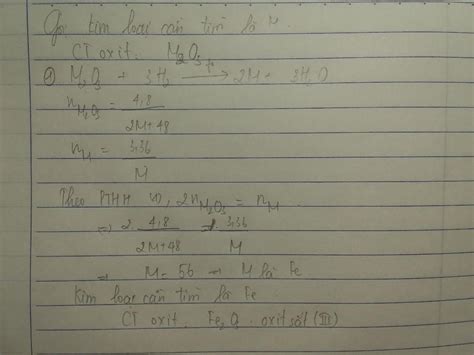 Gọi kim loại cần tìm là M.
CT oxit. M₂O₃
① M₂O₃ + 3H₂ →(t°) 2M + 3H₂O
n_M₂O₃ = 4,8 / (2M+48)
n_M = 3,36 / M
Theo PTHH (1), 2n_M₂O₃ = n_M.
=> 2. 4,8 / (2M+48) = 3,36 / M
=> M = 56 → M là Fe
Kim loại cần tìm là Fe
CT oxit. Fe₂O₃. oxit sắt (III)